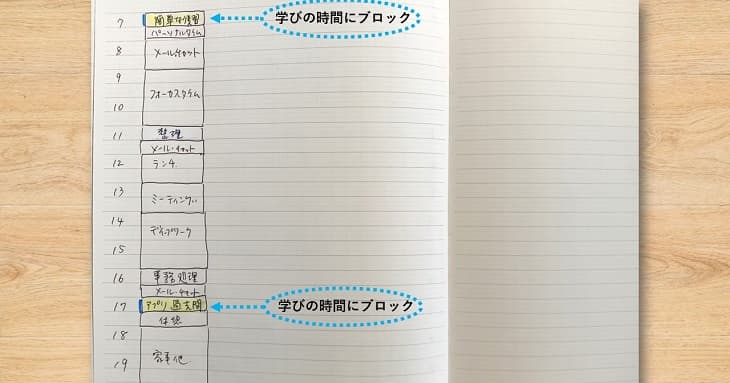 7 簡単な復習 学びの時間にブロック
パーソナルタイム
8 メール・チャット
9
フォーカスタイム
10
11 整理
メール・チャット
12 ランチ
13
ミーティング
14
ディープワーク
15
16 事務処理
メール・チャット
17 アプリ過去問 学びの時間にブロック
休憩
18
家事他
19